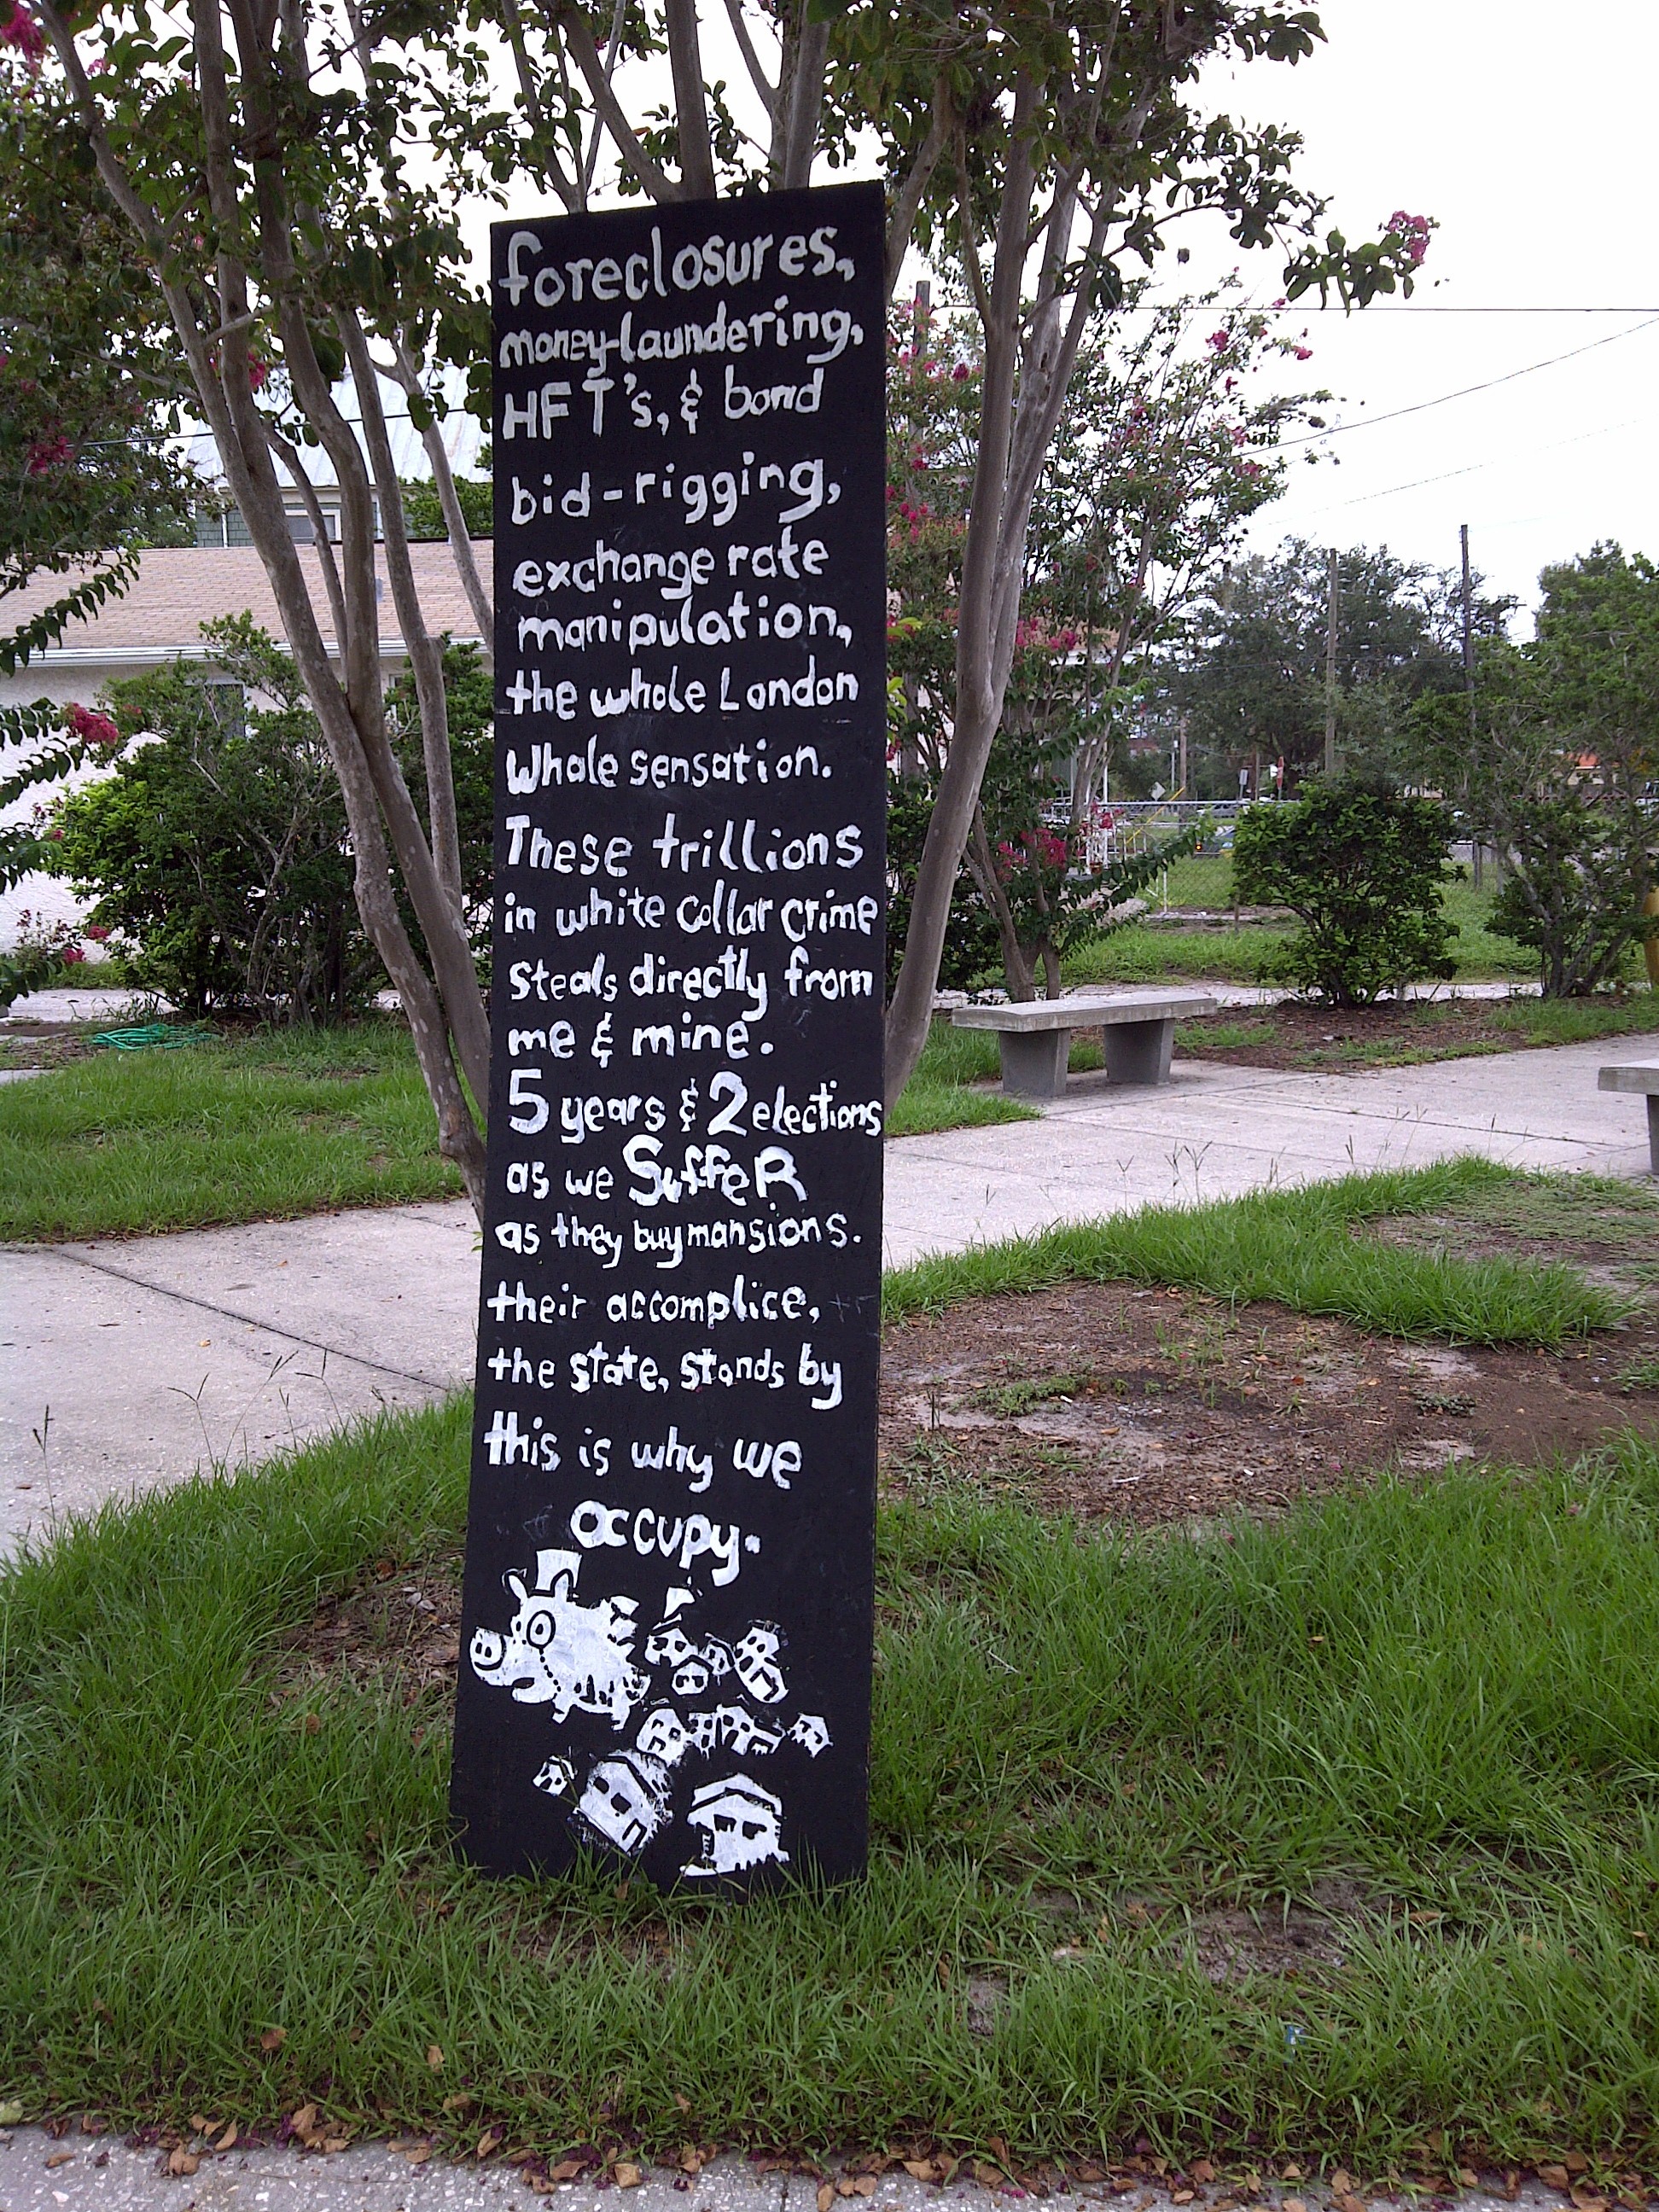 foreclosures,
money-laundering,
HFT's, & bond
bid-rigging,
exchange rate
manipulation,
the whole London
Whale sensation.
These trillions
in white collar crime
steals directly from
me & mine.
5 years & 2 elections
as we SuffeR
as they buy mansions.
their accomplice,
the state, stands by
this is why we
occupy.